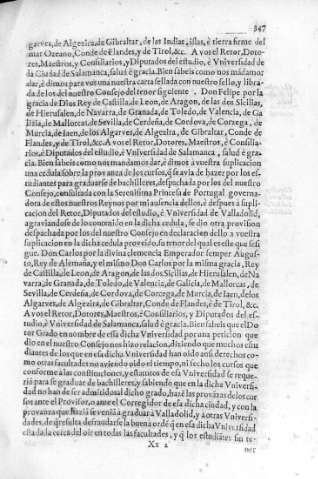 347
garves, de Algezira, de Gibraltar, de las Indias, islas, è tierra firme del
mar Oceano, Conde de Flandes, y de Tirol, &c. A vos el Retor, Doto-
res, Maestros, y Consiliarios, y Diputados del estudio, è Vniuersidad de
la Ciudad de Salamanca, salud è gracia. Bien sabeis como nos mãdamos
dar, è dimos para vos vna nuestra carta sellada con nuestro sello, y libra-
da de los del nuestro Consejo del tenor siguiente. Don Felipe por la
gracia de Dios Rey de Castilla, de Leon, de Aragon, de las dos Sicilias,
de Hierusalen, de Nauarra, de Granada, de Toledo, de Valencia, de Ga
lizia, de Mallorcas, de Seuilla, de Cerdeña, de Cordoua, de Corzega, de
Murcia, de Iaen, de los Algarues, de Algezira, de Gibraltar, Conde de
Flandes, y de Tirol, &c. A vos el Retor, Dotores, Maestros, è Consilia-
rios, è Diputados del estudio, è Vniuersidad de Salamanca, salud è gra-
cia. Bien sabeis como nos mandamos dar, è dimos à vuestra suplicacion
una cedula sobre la prouança de los cursos, q̃ se auia de hazer por los es-
tudiantes para graduarse de bachilleres, despachada por los del nuestro
Consejo, consultada con la Serenissima Princesa de Portugal gouerna-
dora de estos nuestros Reynos por mi ausencia dellos, è despues a supli-
cacion del Retor, Diputados del estudio, è Vniuersidad de Valladolid,
agrauiandose de lo contenido en la dicha cedula, se dio otra prouision
despachada por los del nuestro Consejo en declaracion dello a vuestra
suplicacion en la dicha cedula proueido, su tenor del qual es este que se si-
gue. Don Carlos por la diuina clemencia Emperador semper Augus-
to, Rey de Alemaña, y el mismo Don Carlos por la misma gracia, Rey
de Castilla, de Leon, de Aragon, de las dos Sicilias, de Hierusalen, de Na
uarra, de Granada, de Toledo, de Valencia, de Galicia, de Mallorcas, de
Seuilla, de Cerdeña, de Cordoua, de Corzega, de Murcia, de Iaen, de los
Algarues, de Algezira, de Gibraltar, Conde de Flandes, è de Tirol, &c.
A vos el Retor, Dotores, Maestros, è Consiliarios, y Diputados del es-
tudio, è Vniuersidad de Salamanca, salud è gracia. Bien sabeis que el Do
tor Grado en nombre de esa dicha Vniuersidad por vna peticion que
dio en el nuestro Consejo nos hizo relacion, diziendo que muchos estu
diantes de los que en esa dicha Vniuersidad han oido assi derechos co-
mo otras facultades no auiendo oido el tiempo, ni fecho los cursos que
conforme a las constituciones, y estatutos de esa Vniuersidad se reque-
ria para se graduar de bachilleres, y sabiendo que en la dicha Vniuersi-
dad no han de ser admitidos al dicho grado, hazẽ las prouãzas de los cur
sos ante el Prouisor, o ante el Corregidor de esa dicha ciudad, y con la
prouança que hazia se venia a graduar a Valladolid, y a otras Vniuersi-
dades, de q̃ resulta defraudarse la buena ordẽ q̃ en esa dicha Vniuersidad
està dada cerca del oir en todas las facultades, y q̃ los estudiantes sin te-
Xx 2